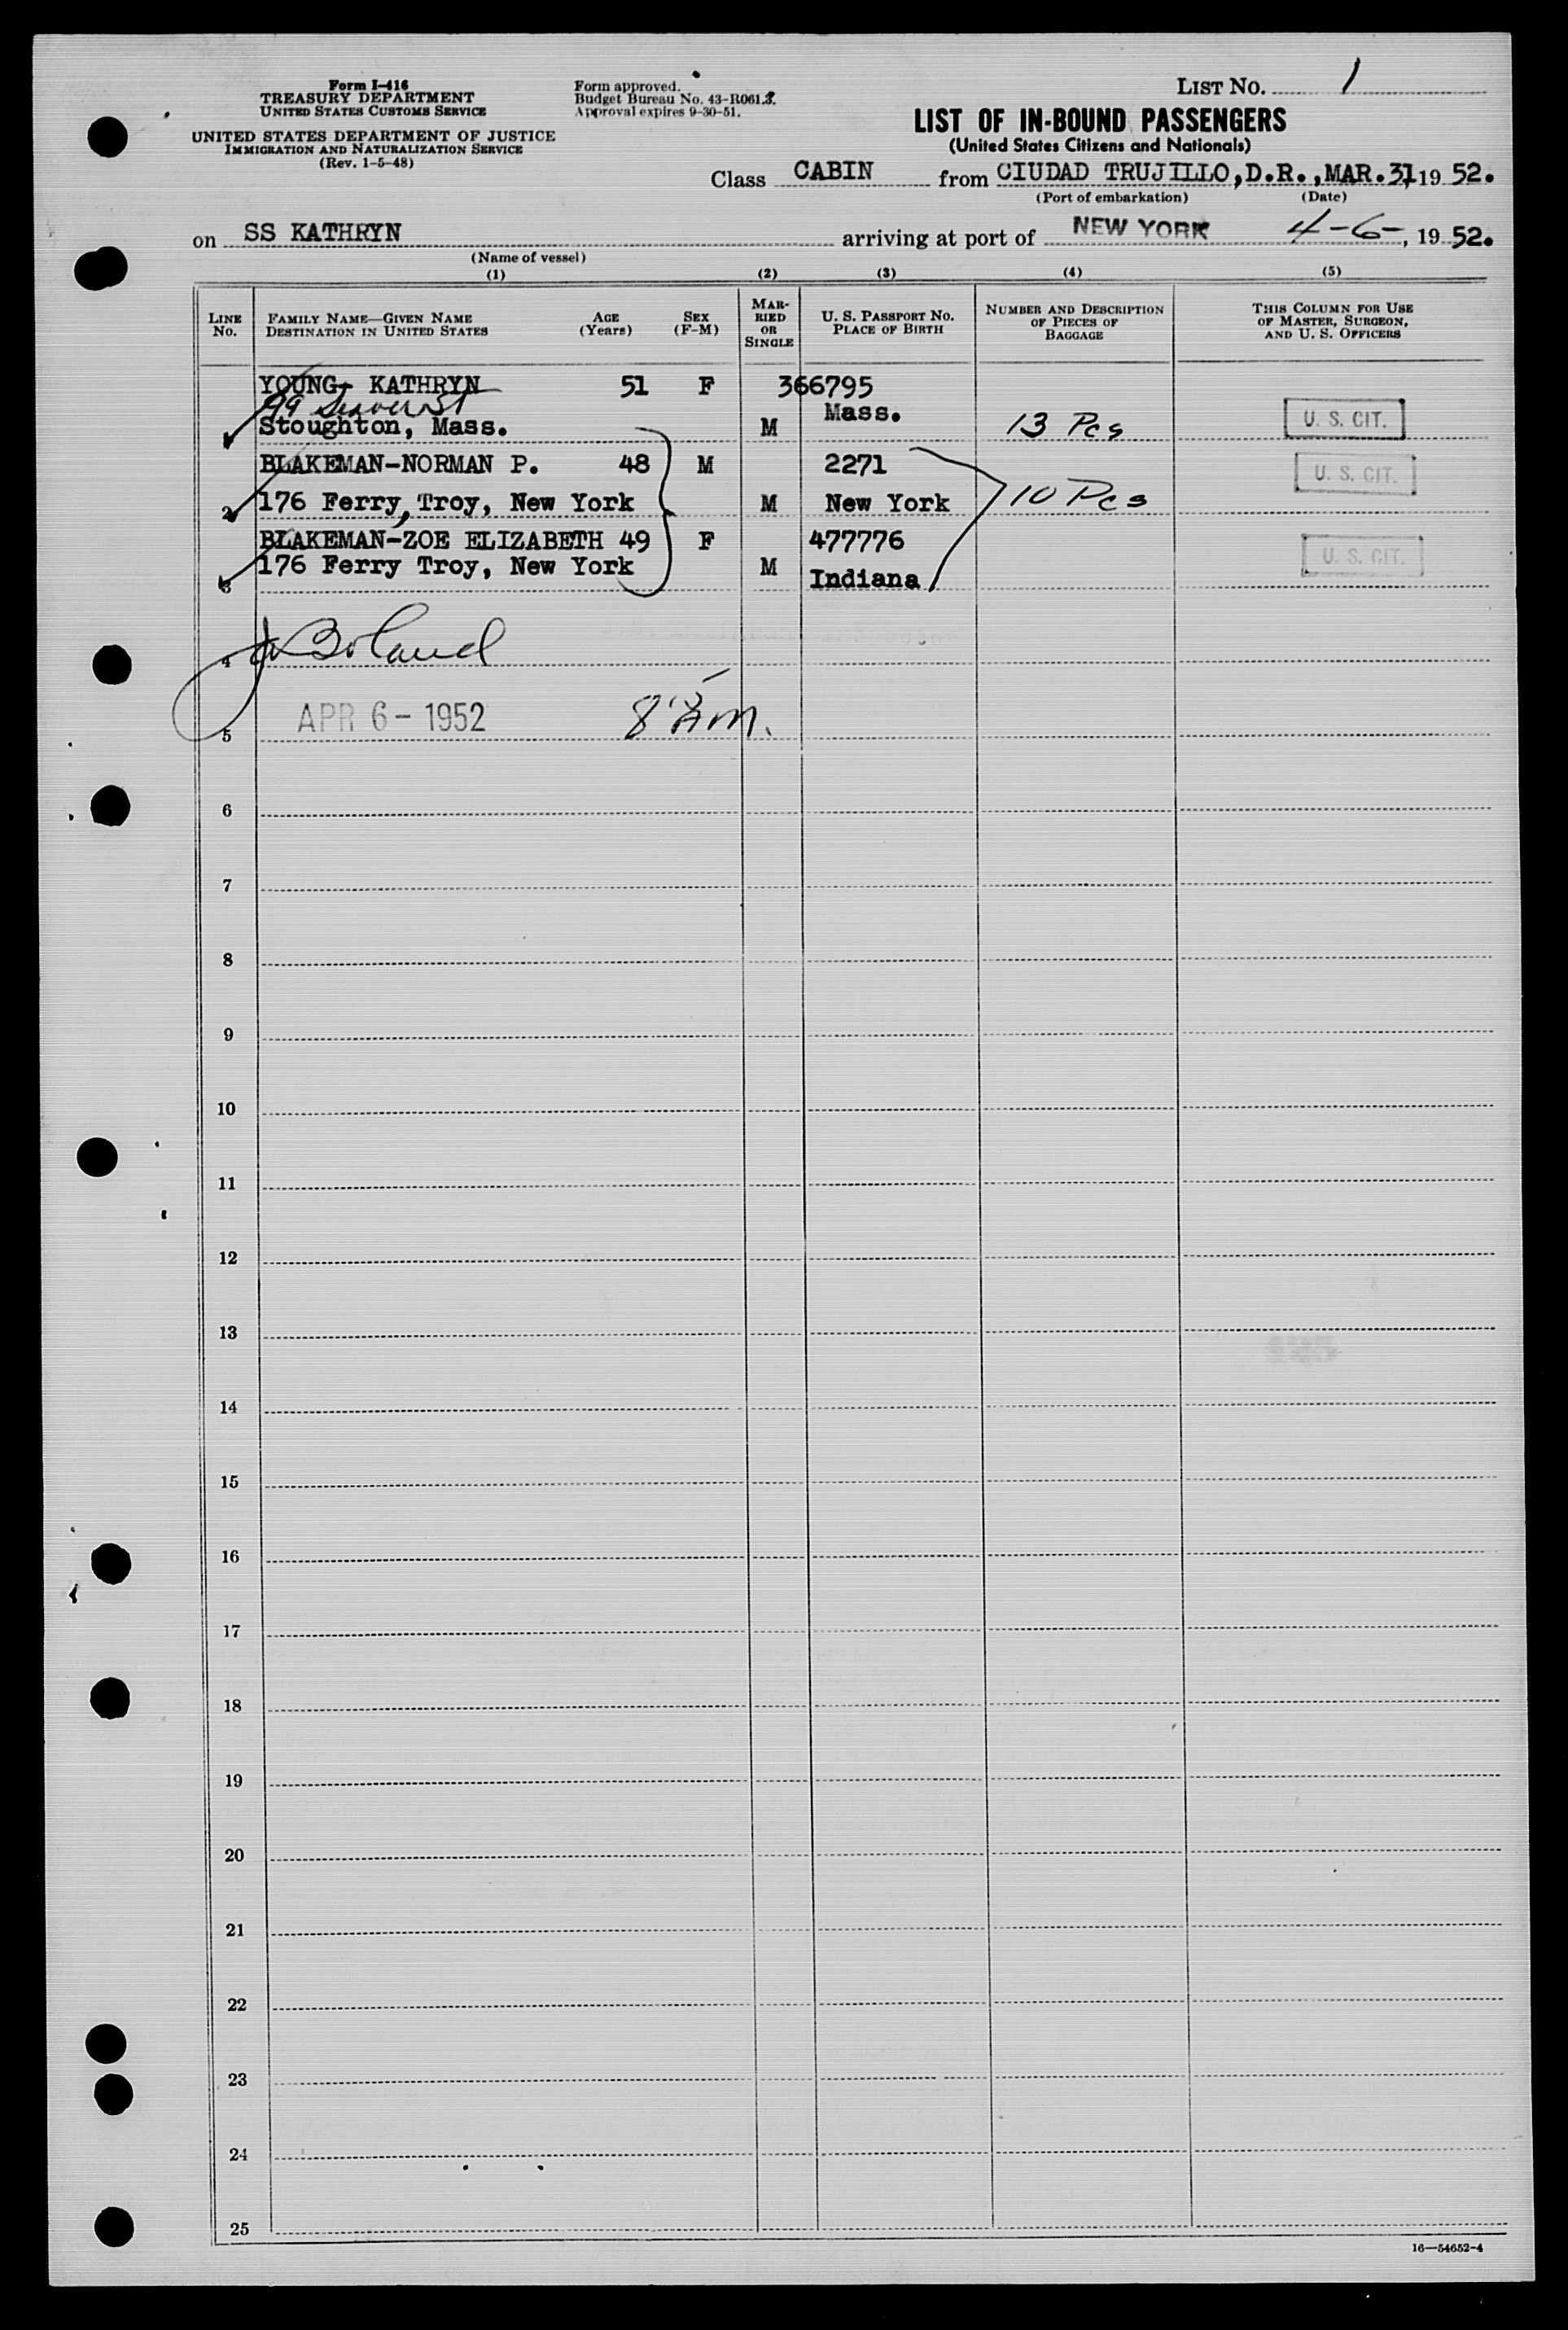 Form I-416
TREASURY DEPARTMENT
UNITED STATES CUSTOMS SERVICE
UNITED STATES DEPARTMENT OF JUSTICE
IMMIGRATION AND NATURALIZATION SERVICE
(Rev. 1-5-48)
Form approved.
Budget Bureau No. 43-R061.3.
Approval expires 9-30-51.
LIST NO. 1
LIST OF IN-BOUND PASSENGERS
(United States Citizens and Nationals)
Class CABIN from CIUDAD TRUJILLO, D.R., MAR. 31, 19 52.
(Port of embarkation) (Date)
on SS KATHRYN arriving at port of NEW YORK 4-6-, 19 52.
(Name of vessel)
(1) (2) (3) (4) (5)
LINE No. FAMILY NAME—GIVEN NAME DESTINATION IN UNITED STATES AGE (Years) SEX (F-M) MARRIED OR SINGLE U. S. PASSPORT NO. PLACE OF BIRTH NUMBER AND DESCRIPTION OF PIECES OF BAGGAGE THIS COLUMN FOR USE OF MASTER, SURGEON, AND U. S. OFFICERS
YOUNG- KATHRYN 51 F 366795
99 St
Stoughton, Mass. M Mass. 13 Pcs U. S. CIT.
BLAKEMAN-NORMAN P. 48 M 2271 U. S. CIT.
2 176 Ferry, Troy, New York M New York 10 Pcs
BLAKEMAN-ZOE ELIZABETH 49 F 477776 U. S. CIT.
3 176 Ferry Troy, New York M Indiana
4 Boland
5 APR 6 - 1952 8 AM.
6
7
8
9
10
11
12
13
14
15
16
17
18
19
20
21
22
23
24
25
16—54652-4